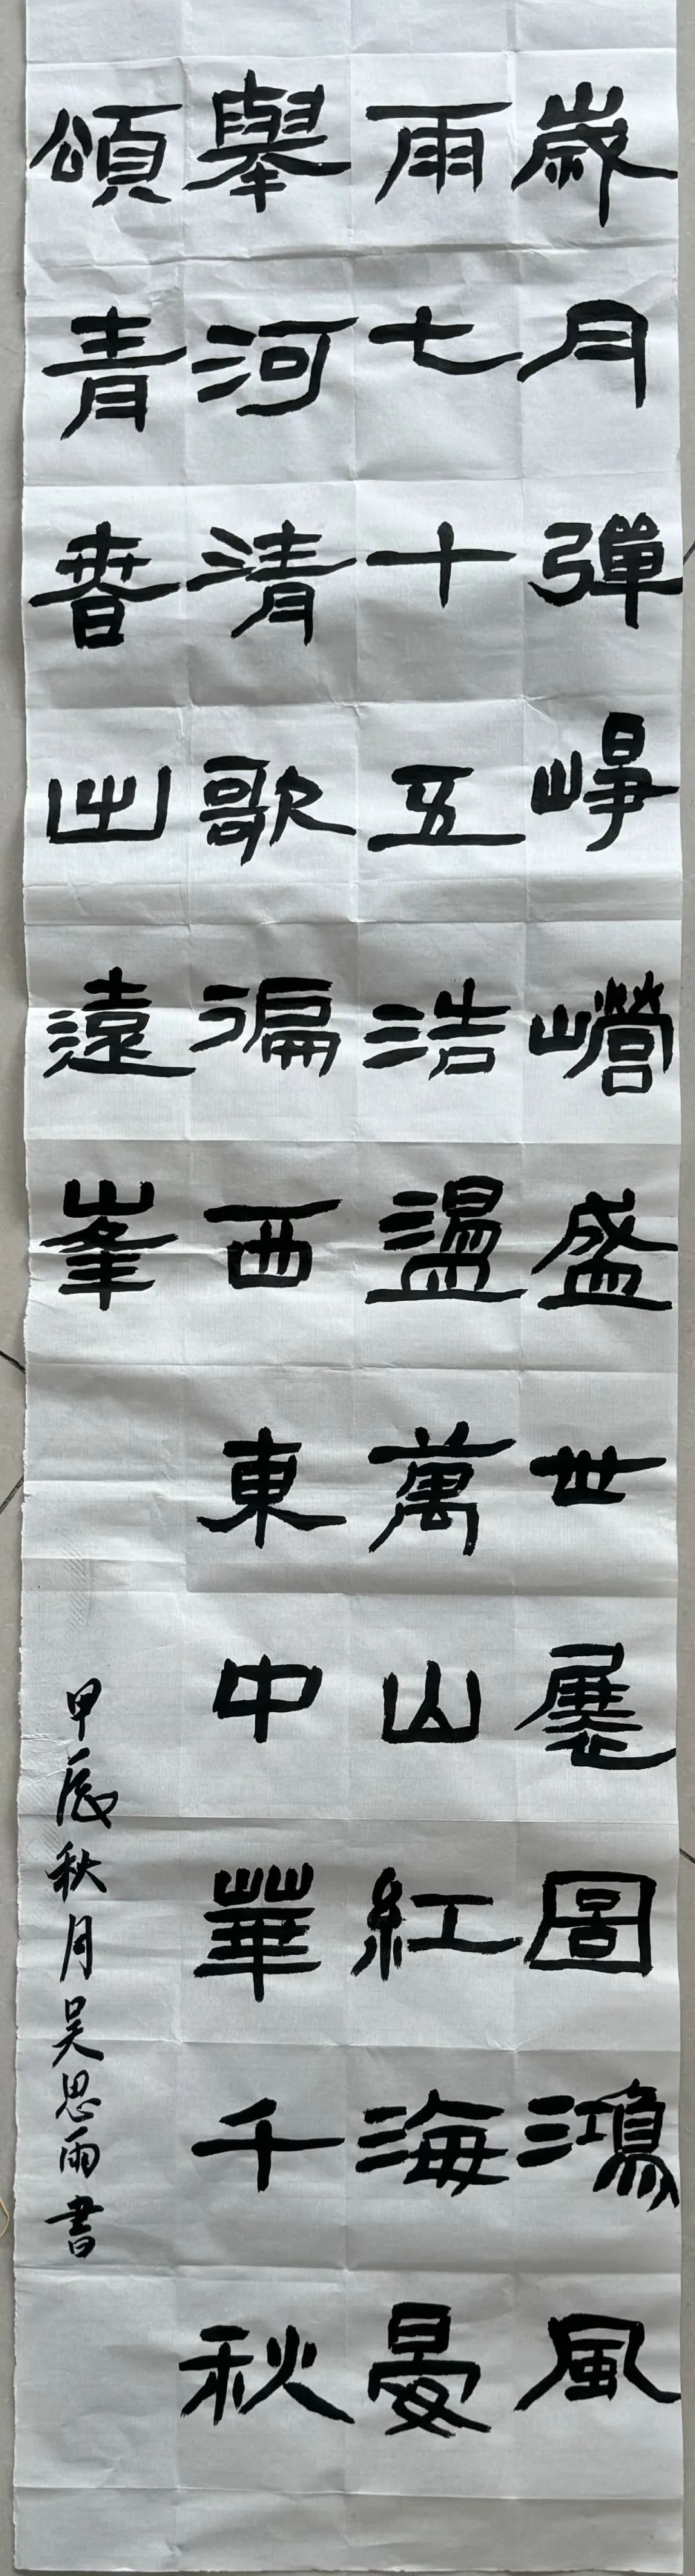 歲月彈崢巆盛世展圖鴻風
雨七十五浩盪萬山紅海晏
舉河清歌徧西東中華千秋
頌青春出遠峯
甲辰秋月吴思雨書